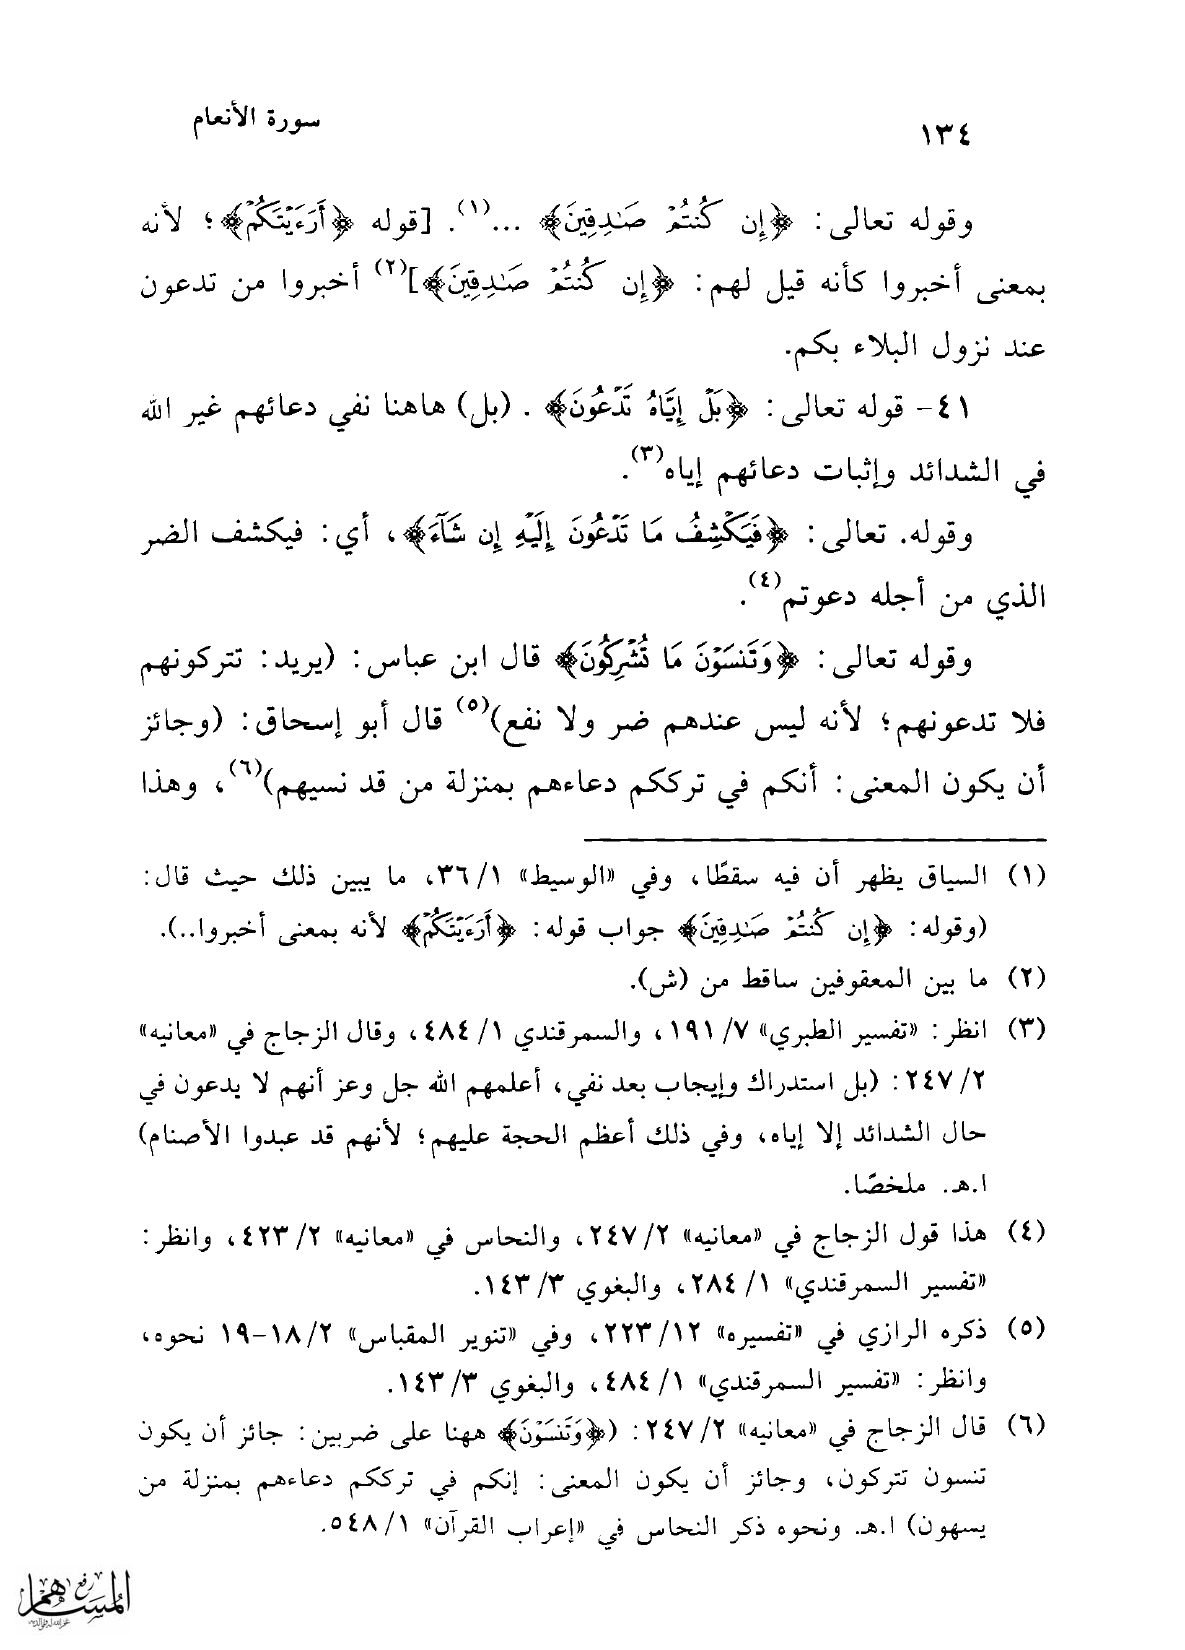 ١٣٤
سورة الأنعام
وقوله تعالى: ﴿إِن كُنتُمْ صَـٰدِقِينَ﴾ ...(١). [قوله ﴿أَرَءَيْتَكُمْ﴾؛ لأنه
بمعنى أخبروا كأنه قيل لهم: ﴿إِن كُنتُمْ صَـٰدِقِينَ﴾](٢) أخبروا من تدعون
عند نزول البلاء بكم.
٤١- قوله تعالى: ﴿بَلْ إِيَّاهُ تَدْعُونَ﴾ . (بل) هاهنا نفي دعائهم غير الله
في الشدائد وإثبات دعائهم إياه(٣).
وقوله. تعالى: ﴿فَيَكْشِفُ مَا تَدْعُونَ إِلَيْهِ إِن شَآءَ﴾، أي: فيكشف الضر
الذي من أجله دعوتم(٤).
وقوله تعالى: ﴿وَتَنسَوْنَ مَا تُشْرِكُونَ﴾ قال ابن عباس: (يريد: تتركونهم
فلا تدعونهم؛ لأنه ليس عندهم ضر ولا نفع)(٥) قال أبو إسحاق: (وجائز
أن يكون المعنى: أنكم في ترككم دعاءهم بمنزلة من قد نسيهم)(٦)، وهذا
(١) السياق يظهر أن فيه سقطًا، وفي «الوسيط» ١/ ٣٦، ما يبين ذلك حيث قال:
(وقوله: ﴿إِن كُنتُمْ صَـٰدِقِينَ﴾ جواب قوله: ﴿أَرَءَيْتَكُمْ﴾ لأنه بمعنى أخبروا..).
(٢) ما بين المعقوفين ساقط من (ش).
(٣) انظر: «تفسير الطبري» ٧/ ١٩١، والسمرقندي ١/ ٤٨٤، وقال الزجاج في «معانيه»
٢/ ٢٤٧: (بل استدراك وإيجاب بعد نفي، أعلمهم الله جل وعز أنهم لا يدعون في
حال الشدائد إلا إياه، وفي ذلك أعظم الحجة عليهم؛ لأنهم قد عبدوا الأصنام)
ا.هـ. ملخصًا.
(٤) هذا قول الزجاج في «معانيه» ٢/ ٢٤٧، والنحاس في «معانيه» ٢/ ٤٢٣، وانظر:
«تفسير السمرقندي» ١/ ٢٨٤، والبغوي ٣/ ١٤٣.
(٥) ذكره الرازي في «تفسيره» ١٢/ ٢٢٣، وفي «تنوير المقباس» ٢/ ١٨-١٩ نحوه،
وانظر: «تفسير السمرقندي» ١/ ٤٨٤، والبغوي ٣/ ١٤٣.
(٦) قال الزجاج في «معانيه» ٢/ ٢٤٧: (﴿وَتَنسَوْنَ﴾ ههنا على ضربين: جائز أن يكون
تنسون تتركون، وجائز أن يكون المعنى: إنكم في ترككم دعاءهم بمنزلة من
يسهون) ا.هـ. ونحوه ذكر النحاس في «إعراب القرآن» ١/ ٥٤٨.